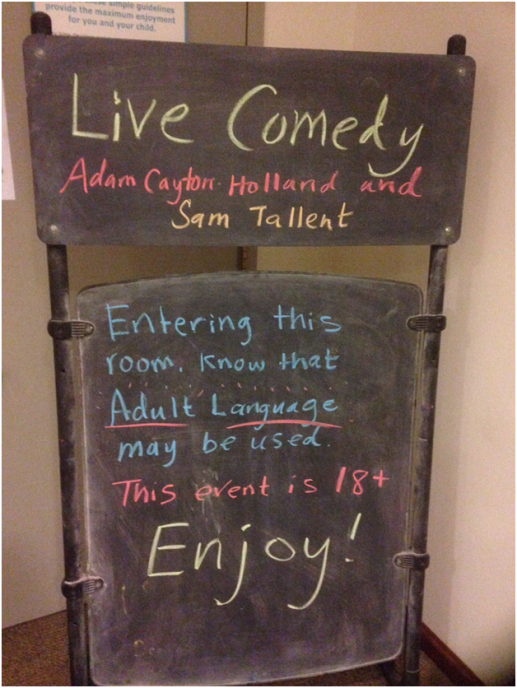 provide the maximum enjoyment
for you and your child.
Live Comedy
Adam Cayton-Holland and
Sam Tallent
Entering this
room, know that
Adult Language
may be used.
This event is 18+
Enjoy!